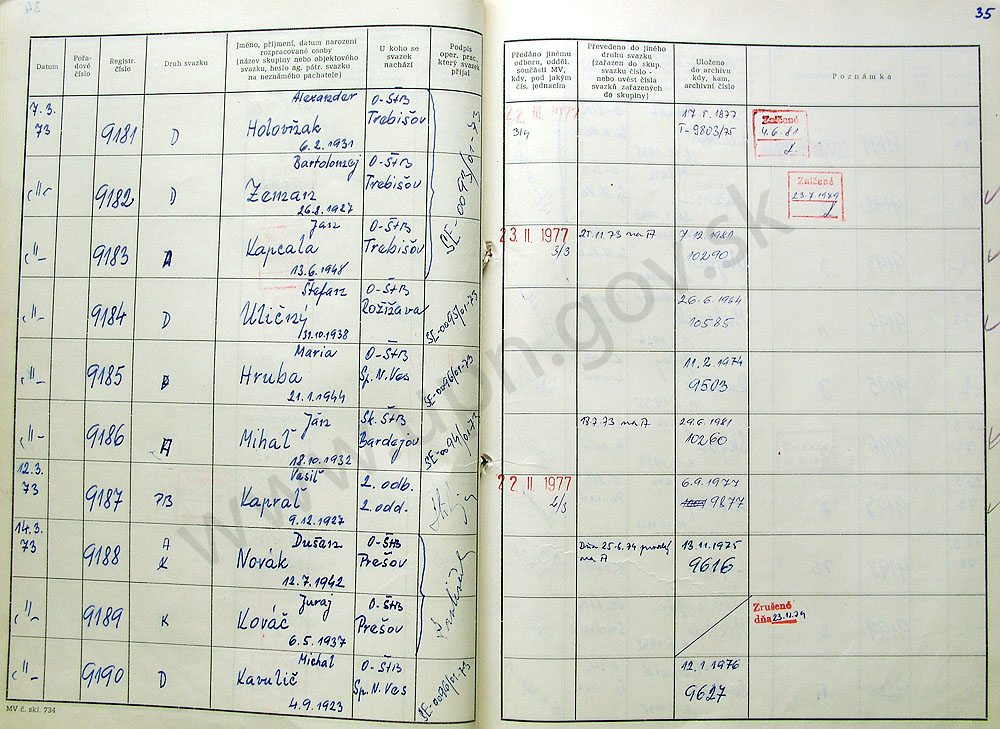 35
Datum
Pořadové číslo
Registr. číslo
Druh svazku
Jméno, příjmení, datum narození
rozpracované osoby
(název skupiny nebo objektového
svazku, heslo ag. pátr. svazku
na neznámého pachatele)
U koho se
svazek
nachází
Podpis
oper. prac.,
který svazek
přijal
Předáno jinému
odboru, odděl.
součásti MV,
kdy, pod jakým
čís. jednacím
Převedeno do jiného
druhu svazku
(zařazen do skup.
svazku číslo -
nebo uvést čísla
svazků zařazených
do skupiny)
Uloženo
do archivu
kdy, kam,
archivní číslo
Poznámka
7.3.
73
9181
D
Alexander
Holovňak
6.2.1931
O-ŠtB
Trebišov
SE-0093/01-73
22 III 1977
319
17.5.1977
I-9803/75
Zničené
4.6.81
9182
D
Bartolomej
Zeman
26.2.1927
O-ŠtB
Trebišov
Zničené
9183
Ján
Kapcala
13.6.1948
O-ŠtB
Trebišov
23. II 1977
3/3
21.11.73 na A
7.12.1981
10290
9184
D
Štefan
Uličný
31.10.1938
O-ŠtB
Rožňava
SE-0095/01-73
26.6.1984
10585
9185
Maria
Hruba
21.1.1944
O-ŠtB
Sp. N. Ves
SE-0096/01-73
11.2.1974
9503
9186
A
Ján
Mihaľ
18.10.1932
Sk. ŠtB
Bardejov
SE-0094/01-73
18.7.73 na A
29.6.1981
10260
12.3.
73
9187
PB
Vasiľ
Kapraľ
9.12.1927
2. odb.
2. odd.
22 II 1977
2/3
6.9.1977
9877
14.3.
73
9188
A
K
Dušan
Novák
12.7.1942
O-ŠtB
Prešov
Dňa 25.6.74
na A
13.11.1975
9616
9189
K
Juraj
Kováč
6.5.1937
O-ŠtB
Prešov
Zrušené
dňa 23.11.74
9190
D
Michal
Kavulič
4.9.1923
O-ŠtB
Sp. N. Ves
SE-0096/01-73
12.1.1976
9627
MV č. skl. 734
www.upn.gov.sk